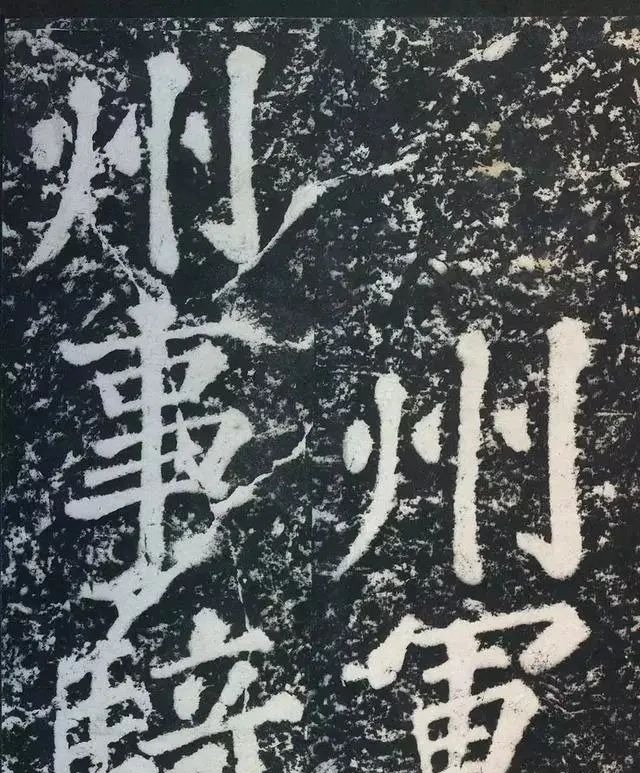 州軍
州事騎